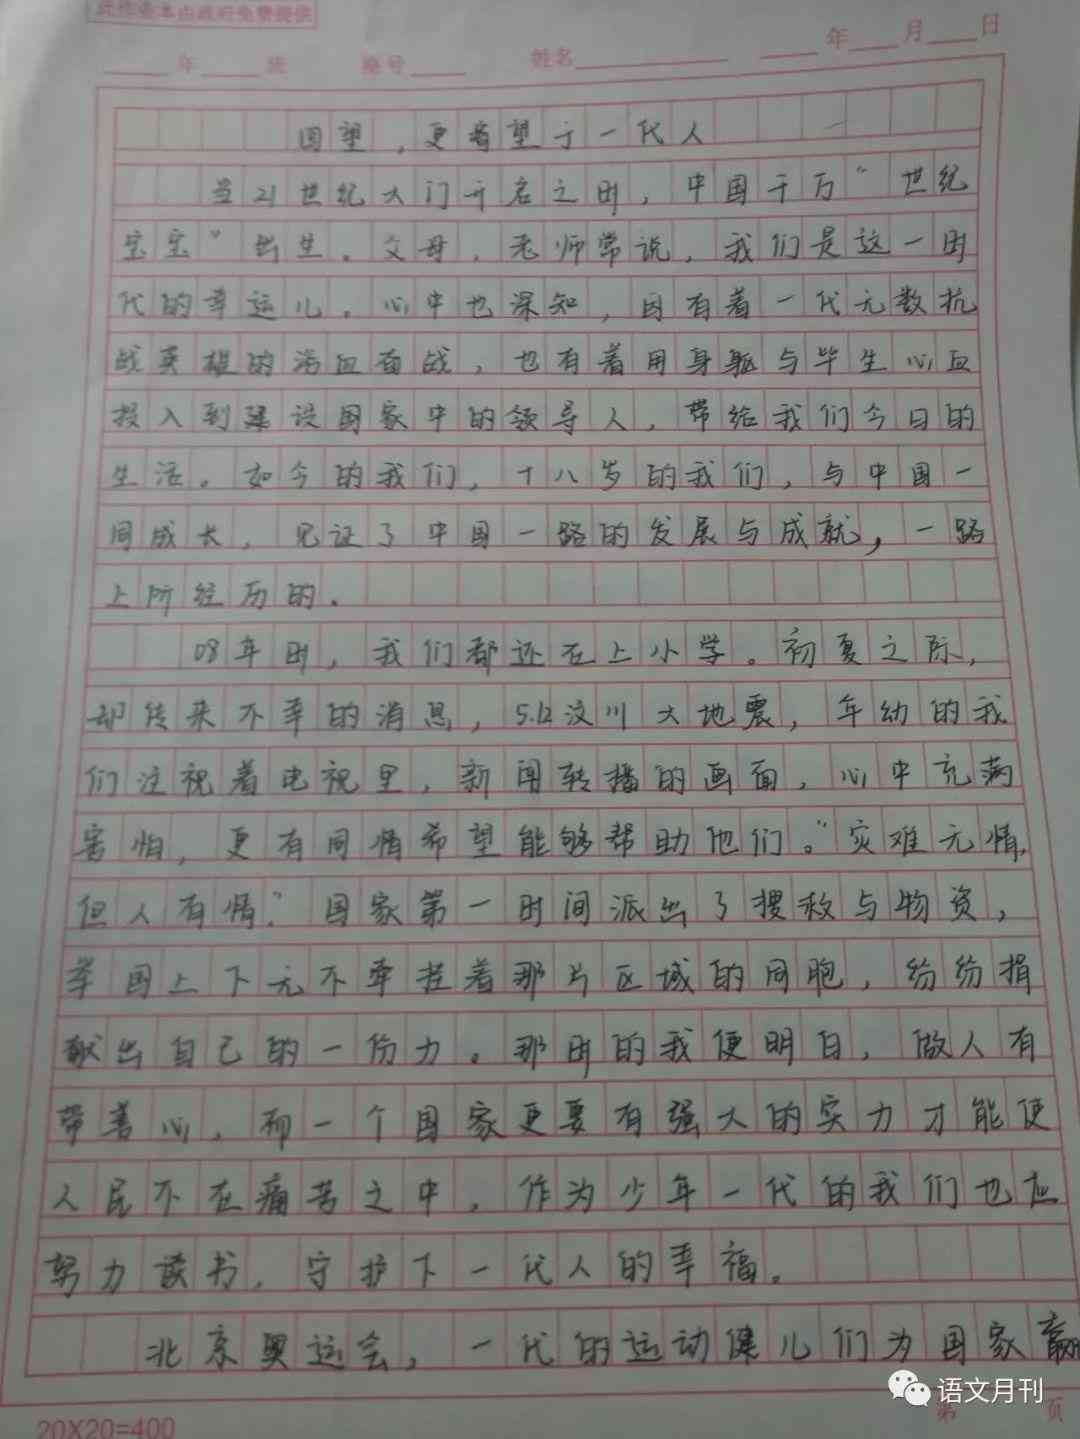 此作业本由政府免费提供
年 班 座号 姓名 年 月 日
回望，更希望于一代人
当21世纪大门开启之时，中国千万“世纪
宝宝”出生。父母，老师常说，我们是这一时
代的幸运儿。心中也深知，因有着一代无数抗
战英雄的浴血奋战，也有着用身躯与毕生心血
投入到建设国家中的领导人，带给我们今日的
生活。如今的我们，十八岁的我们，与中国一
同成长，见证了中国一路的发展与成就，一路
上所经历的.
08年时，我们都还在上小学。初夏之际，
却传来不幸的消息，5.12汶川大地震，年幼的我
们注视着电视里，新闻转播的画面，心中充满
害怕，更有同情希望能够帮助他们。“灾难无情，
但人有情.”国家第一时间派出了搜救与物资，
举国上下无不牵挂着那片区域的同胞，纷纷捐
献出自己的一份力。那时的我便明白，做人有
带善心，而一个国家更要有强大的实力才能使
人民不在痛苦之中，作为少年一代的我们也应
努力读书，守护下一代人的幸福。
北京奥运会，一代的运动健儿们为国家赢
语文月刊
20X20=400
第 页